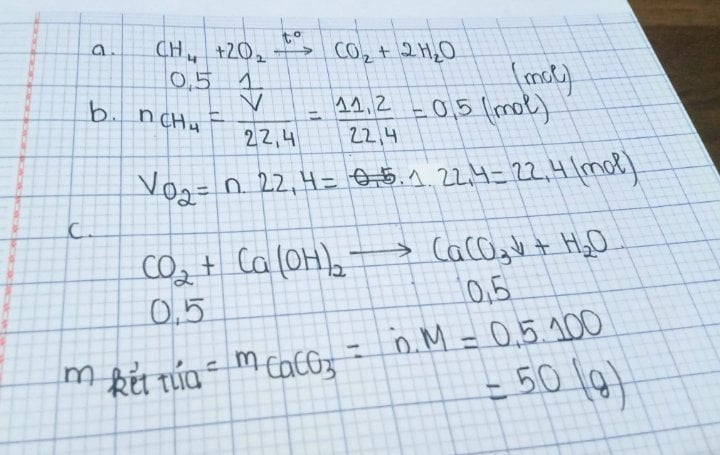 a. CH₄ + 2O₂ →(t°) CO₂ + 2H₂O
0,5 1 (mol)
b. nCH₄ = V/22,4 = 11,2/22,4 = 0,5 (mol)
VO₂ = n. 22,4 = 0,5. 1. 22,4 = 22,4 (mol)
c.
CO₂ + Ca(OH)₂ → CaCO₃↓ + H₂O
0,5 0,5
m kết tủa = mCaCO₃ = n.M = 0,5.100
= 50 (g)